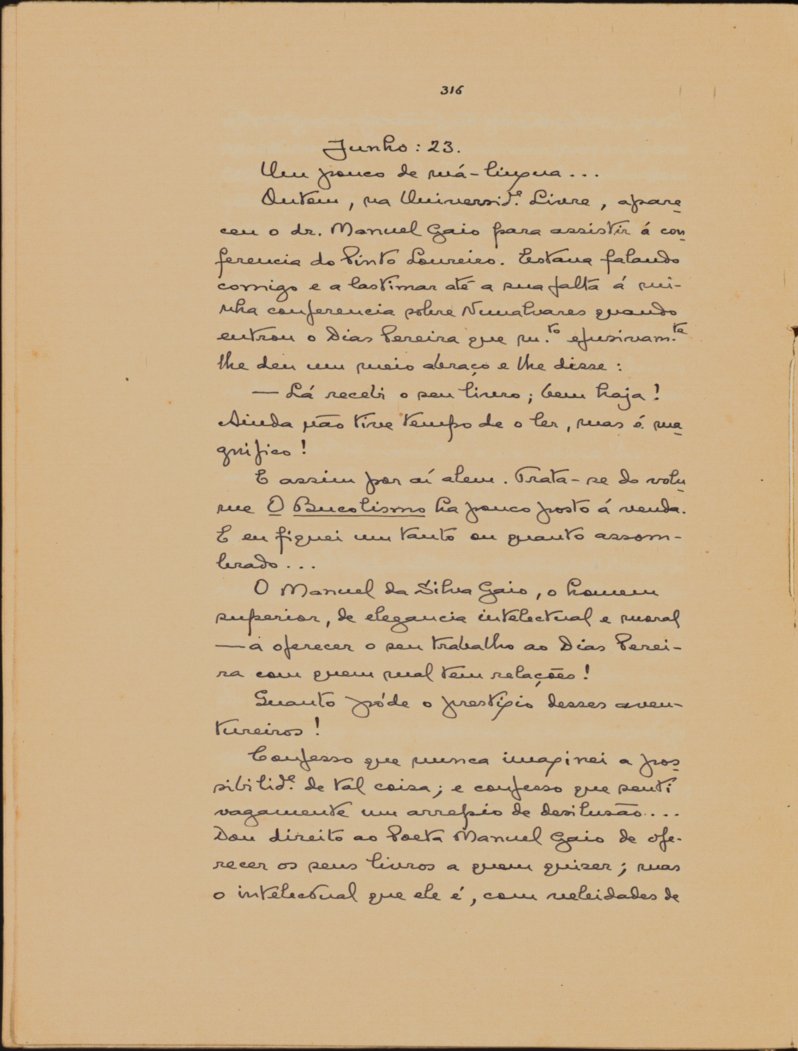 316
Junho: 23.
Um pouco de má-lingua...
Ontem, na Universid.e Livre, apare-
ceu o dr. Manuel Gaio para assistir á con-
ferencia do Pinto Loureiro. Estava falando
comigo e a lastimar até a sua falta á mi-
nha conferencia sobre Nunalvares quando
entrou o Dias Pereira que m.to efusivam.te
lhe deu um meio abraço e lhe disse:
— Lá recebi o seu livro; bem haja!
Ainda não tive tempo de o ler, mas é ma-
gnifico!
E assim por aí alem. Trata-se do volu-
me O Bucolismo ha pouco posto á venda.
E eu fiquei um tanto ou quanto assom-
brado...
O Manuel da Silva Gaio, o homem
superior, de elegancia intelectual e moral
— a oferecer o seu trabalho ao Dias Perei-
ra com quem mal tem relações!
Quanto póde o prestigio desses aven-
tureiros!
Confesso que nunca imaginei a pos-
sibilid.e de tal coisa; e confesso que senti
vagamente um arrepio de desilusão...
Dou direito ao Poeta Manuel Gaio de ofe-
recer os seus livros a quem quizer; mas
o intelectual que ele é, com veleidades de